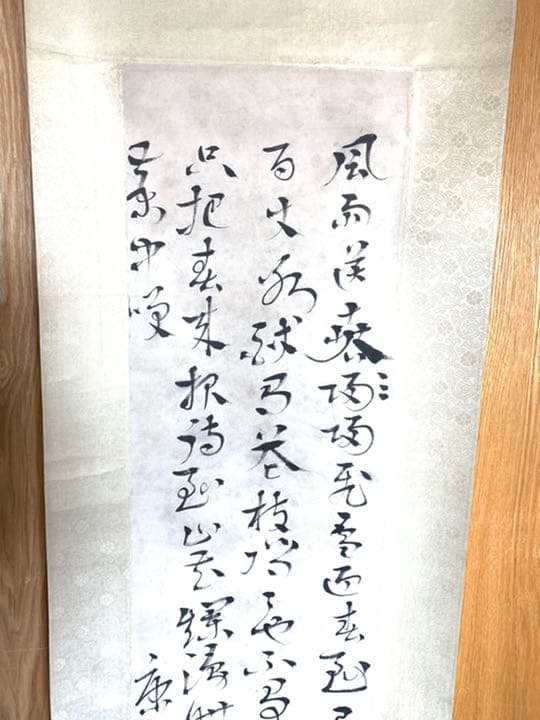 風雨送春歸歸飛雪迎春到
百丈冰猶有花枝俏々也不爭
只把春来报待到山花爛漫時
叢中笑
康